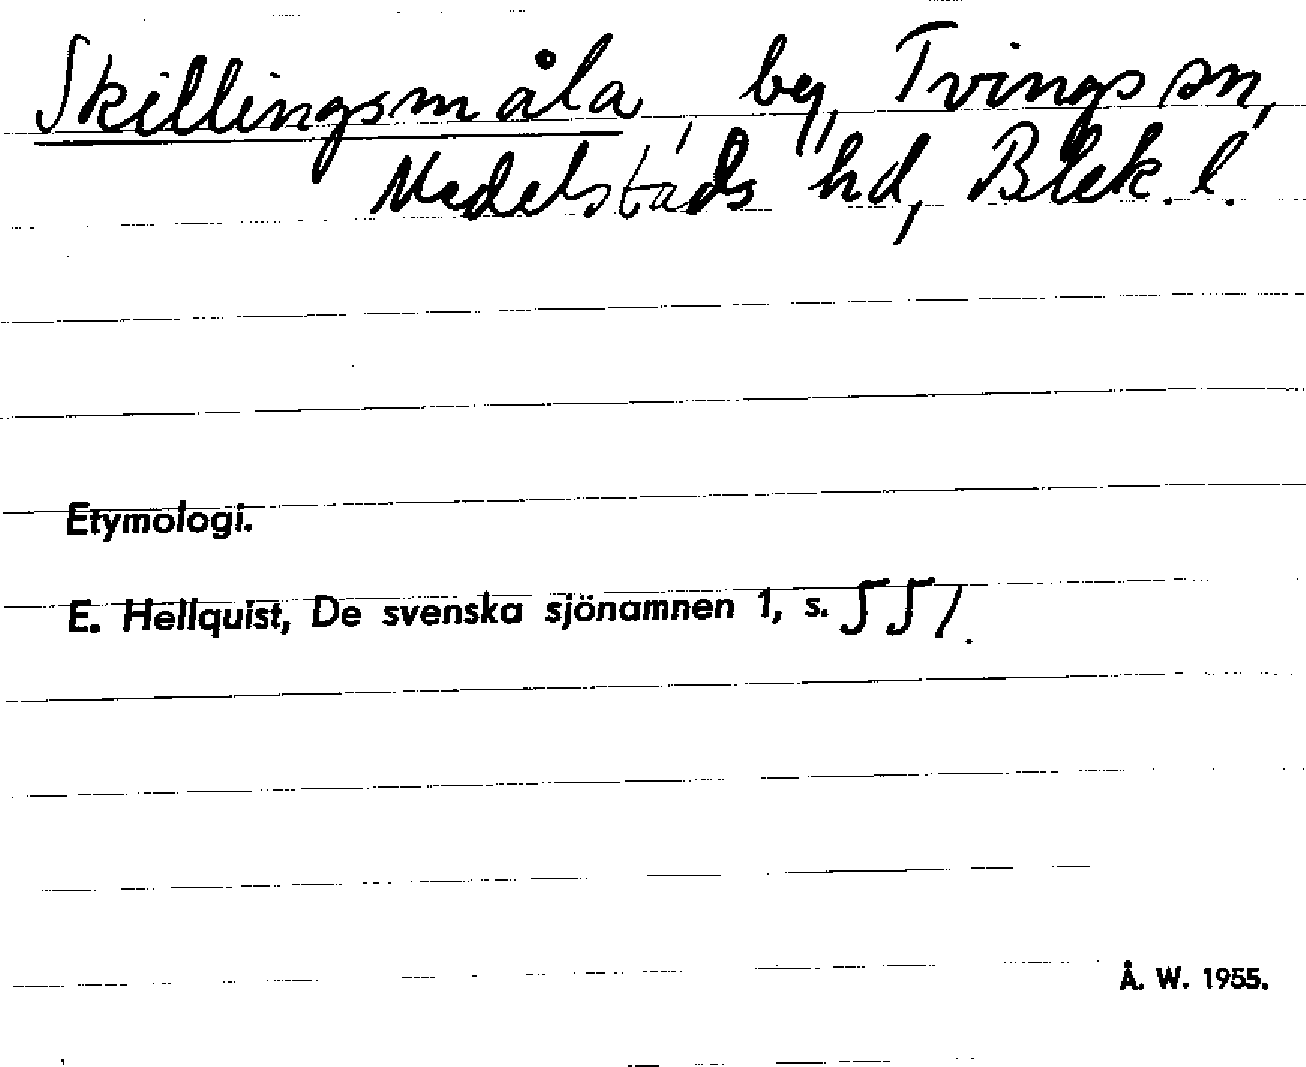 Skillingsmåla, by, Tvings sn,
Medelstads hd, Blek. l.
Etymologi.
E. Hellquist, De svenska sjönamnen 1, s. 551.
Å. W. 1955.